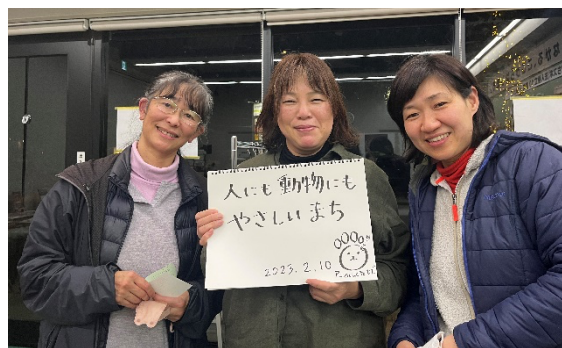 人にも動物にも
やさしいまち
2023.2.10